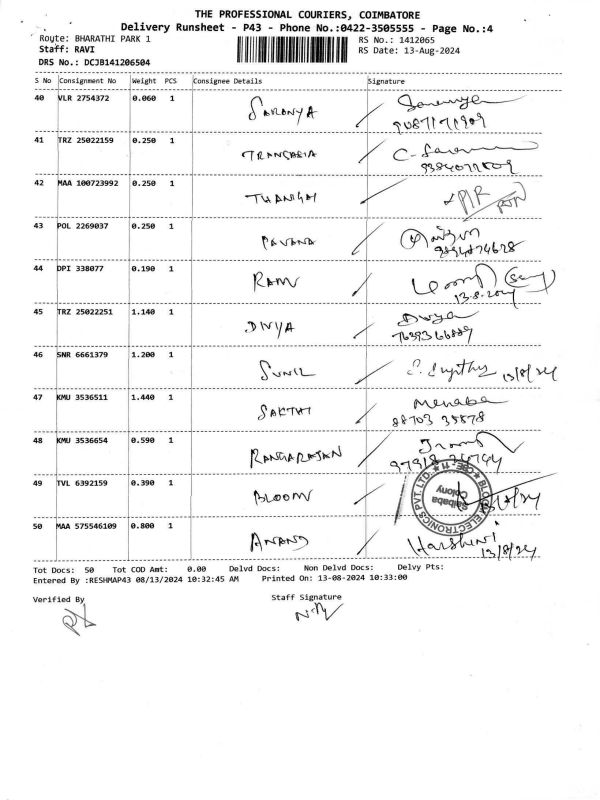 THE PROFESSIONAL COURIERS, COIMBATORE
Delivery Runsheet - P43 - Phone No.:0422-3505555 - Page No.:4
Route: BHARATHI PARK 1 RS No.: 1412065
Staff: RAVI RS Date: 13-Aug-2024
DRS No.: DCJB141206504
S No Consignment No Weight PCS Consignee Details Signature
40 VLR 2754372 0.060 1 SARANYA
41 TRZ 25022159 0.250 1
42 MAA 100723992 0.250 1 THANGAI
43 POL 2269037 0.250 1 PAVANA
44 DPI 338077 0.190 1 RAMU
13.8.2024
45 TRZ 25022251 1.140 1 DIVYA Divya
46 SNR 6661379 1.200 1 SUNIL 13/8/24
47 KMU 3536511 1.440 1 SAKTHI Menaba
88703 35878
48 KMU 3536654 0.590 1 RANGARAJAN
49 TVL 6392159 0.390 1 BLOOM
BLOOM ELECTRONICS PVT. LTD. CBE-11
Saibaba Colony
50 MAA 575546109 0.800 1 ANAND Harshini
13/8/24
Tot Docs: 50 Tot COD Amt: 0.00 Delvd Docs: Non Delvd Docs: Delvy Pts:
Entered By :RESHMAP43 08/13/2024 10:32:45 AM Printed On: 13-08-2024 10:33:00
Verified By Staff Signature